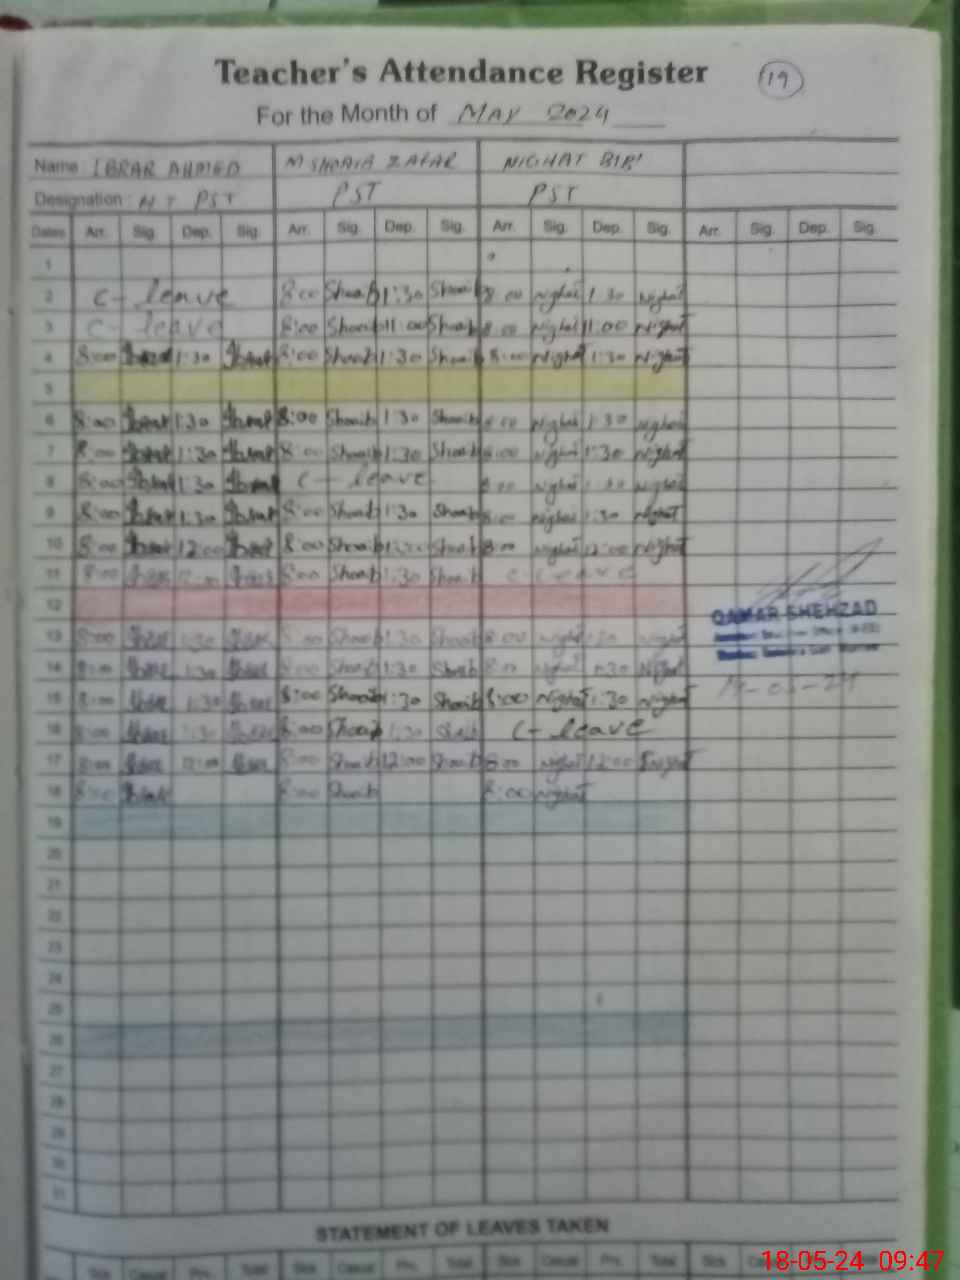 Teacher's Attendance Register
19
For the Month of MAY 2024
Name IBRAR AHMED M SHOAIB ZAFAR NIGHAT BIBI
Designation: PST PST PST
Dates Arr. Sig. Dep. Sig. Arr. Sig. Dep. Sig. Arr. Sig. Dep. Sig. Arr. Sig. Dep. Sig.
1
2 C- leave 8:00 Shoaib 1:30 Shoaib 8:00 Nighat 1:30 Nighat
3 C- leave 8:00 Shoaib 11:00 Shoaib 8:00 Nighat 11:00 Nighat
4 8:00 Ibrar 1:30 Ibrar 8:00 Shoaib 1:30 Shoaib 8:00 Nighat 1:30 Nighat
5
6 8:00 Ibrar 1:30 Ibrar 8:00 Shoaib 1:30 Shoaib 8:00 Nighat 1:30 Nighat
7 8:00 Ibrar 1:30 Ibrar 8:00 Shoaib 1:30 Shoaib 8:00 Nighat 1:30 Nighat
8 8:00 Ibrar 1:30 Ibrar C- leave 8:00 Nighat 1:30 Nighat
9 8:00 Ibrar 1:30 Ibrar 8:00 Shoaib 1:30 Shoaib 8:00 Nighat 1:30 Nighat
10 8:00 Ibrar 12:00 Ibrar 8:00 Shoaib Shoaib 8:00 Nighat 12:00 Nighat
11 8:00 Ibrar 12:00 Ibrar 8:00 Shoaib 1:30 Shoaib C-Leave
12
QAMAR SHEHZAD
13 8:00 Ibrar 1:30 Ibrar 8:00 Shoaib 1:30 Shoaib 8:00 Nighat 1:30 Nighat
14 8:00 Ibrar 1:30 Ibrar 8:00 Shoaib 1:30 Shoaib 8:00 Nighat 1:30 Nighat
15 8:00 Ibrar 1:30 Ibrar 8:00 Shoaib 1:30 Shoaib 8:00 Nighat 1:30 Nighat
16 8:00 Ibrar 1:30 Ibrar 8:00 Shoaib 1:30 Shoaib C- leave
17 8:00 Ibrar 12:00 Ibrar 8:00 Shoaib 12:00 Shoaib 8:00 Nighat 12:00 Nighat
18 8:00 Ibrar 8:00 Shoaib 8:00 Nighat
19
20
21
22
23
24
25
26
27
28
29
30
31
STATEMENT OF LEAVES TAKEN
Sick Total Sick Casual Priv. Total Sick Casual Priv. Total Sick
18-05-24 09:47